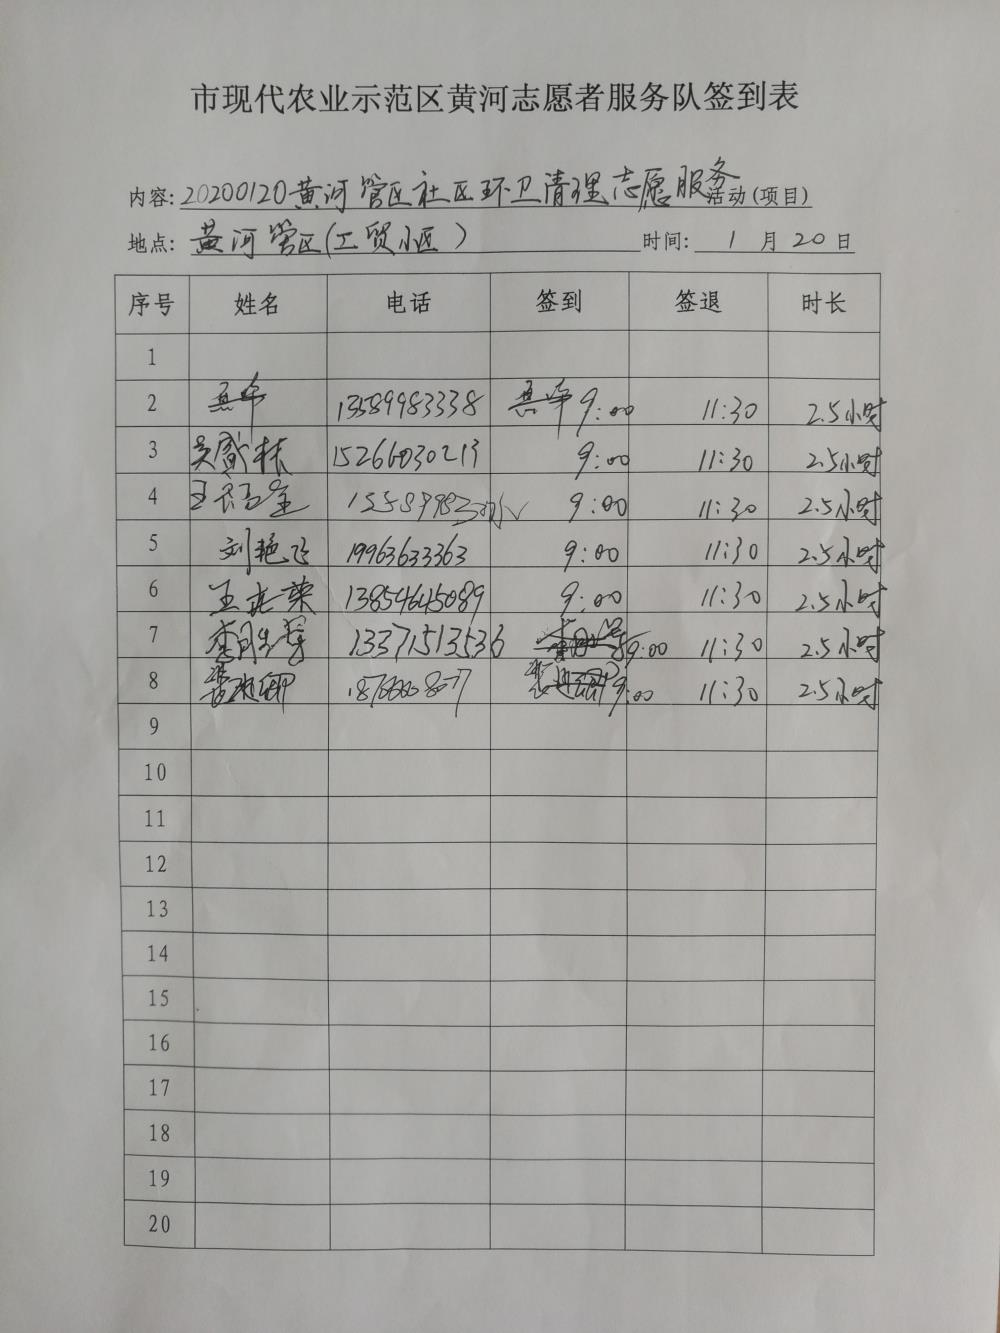 市现代农业示范区黄河志愿者服务队签到表
内容: 20200120黄河管区社区环卫清理志愿服务活动(项目)
地点: 黄河管区(工贸小区) 时间: 1月20日
序号 姓名 电话 签到 签退 时长
1
2 13589983338 9:00 11:30 2.5小时
3 吴盛林 15266030213 9:00 11:30 2.5小时
4 9:00 11:30 2.5小时
5 刘艳飞 19963633363 9:00 11:30 2.5小时
6 13854645089 9:00 11:30 2.5小时
7 13371513536 9:00 11:30 2.5小时
8 9:00 11:30 2.5小时
9
10
11
12
13
14
15
16
17
18
19
20